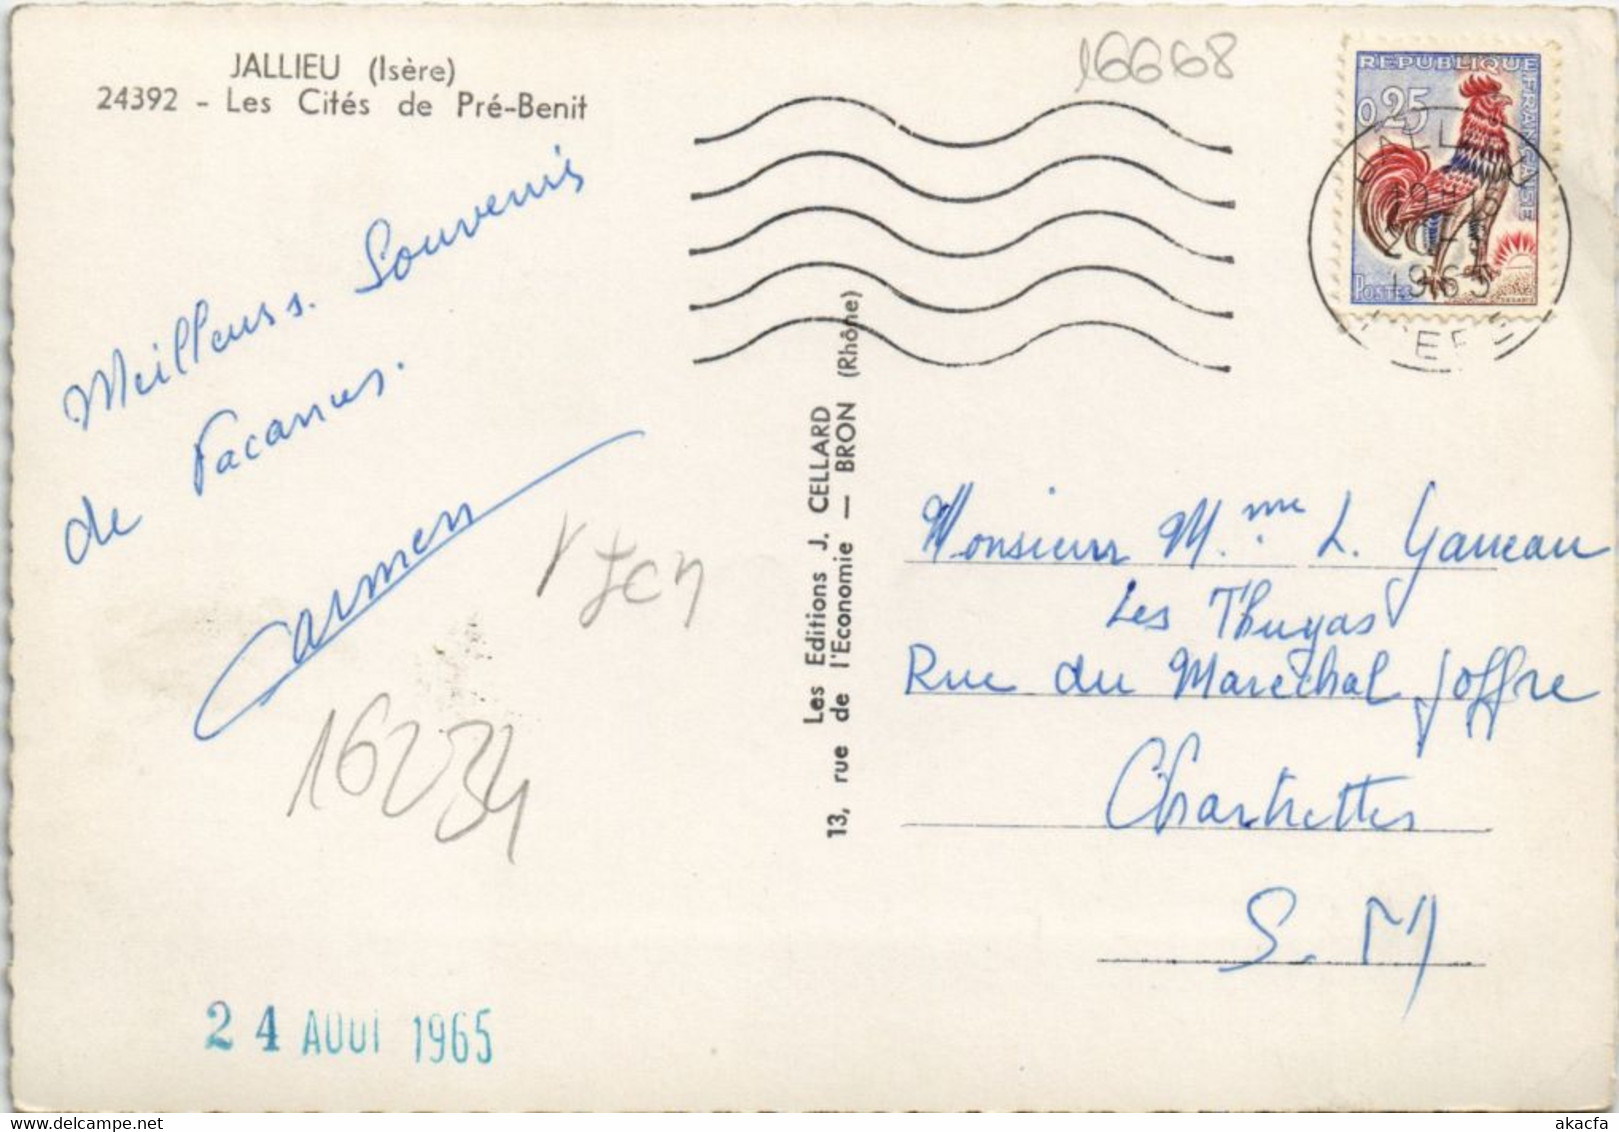 JALLIEU (Isère)
24392 - Les Cités de Pré-Benit
Meilleurs Souvenirs
de Vacances.
Carmen
16234
24 AOUT 1965
Les Editions J. CELLARD
13, rue de l'Economie — BRON (Rhône)
16668
REPUBLIQUE FRANCAISE
0,25
POSTES
JALLIEU
1965
ISERE
Monsieur Mme L. Gauneau
Les Thuyas
Rue du Maréchal Joffre
Chartrettes
S. M
akacfa